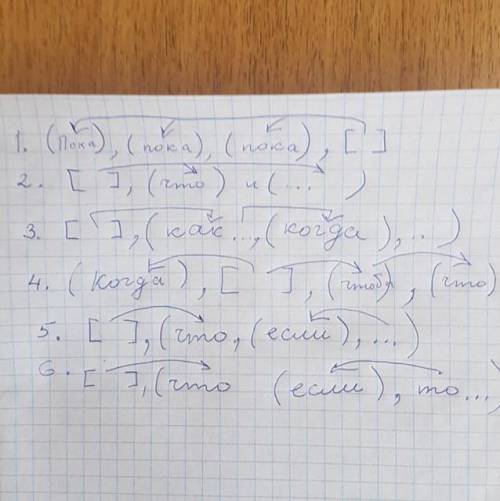 1. (Пока), (пока), (пока), [ ]
2. [ ], (что) и (... )
3. [ ], (как..., (когда), ..)
4. (когда), [ ], (чтобы), (что)
5. [ ], (что, (если), ...)
6. [ ], (что (если), то...)